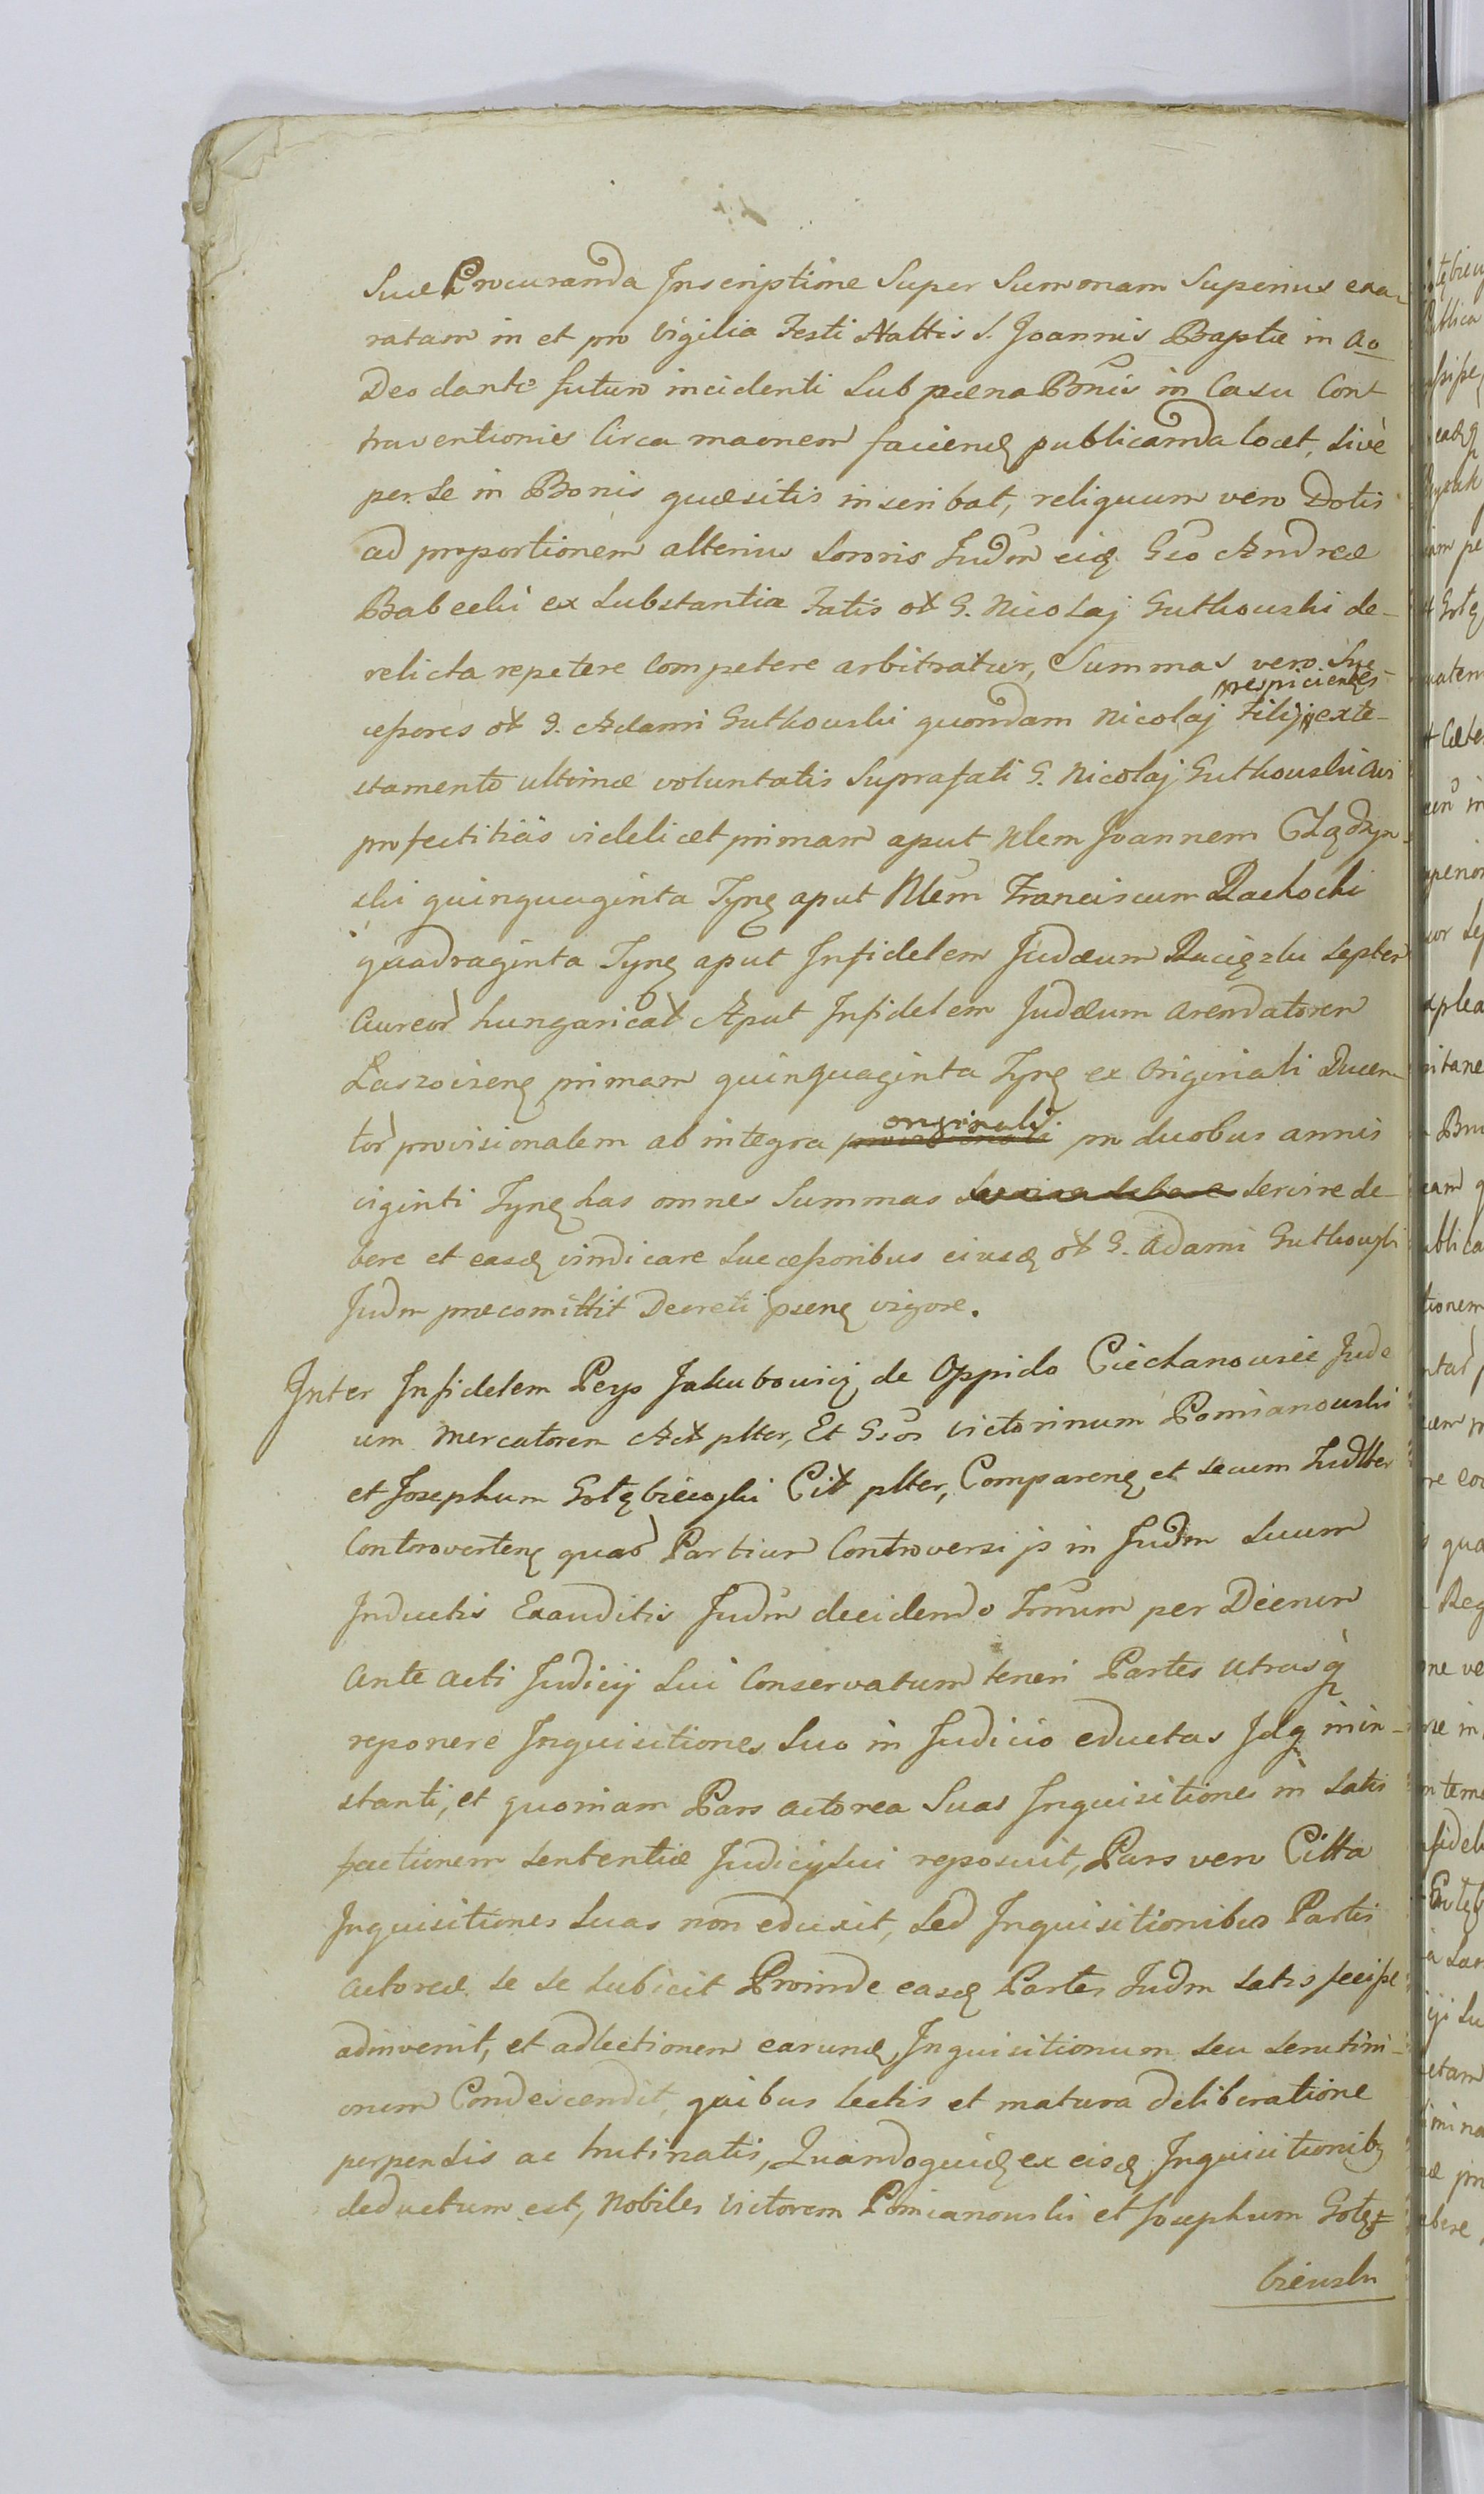 Suæ Procuranda Inscriptione Super Summam Superius exa-
ratam in et pro Vigilia Festi Nattis S. Joannis Baptæ in Ao
Deo dante futuro incidenti Sub pæna Bnis in Casu Cont
traventionis Circa manem faciend publicanda locet, sive
per Se in Bonis quæsitis inscribat, reliquum vero Dotis
ad proportionem alterius Sororis Judm eid Gso Andreæ
Babecki ex Substantia Fatis ol G. Nicolaj Gutkowski de-
relicta repetere Competere arbitratur, Summas vero Suc-
cessores ol G. Adami Gutkowski quondam Nicolaj Filij respicientes exte-
stamento ultimæ voluntatis Suprafati G. Nicolaj Gutkowski Avi
profectitias videlicet primam aput Nlem Joannem Głądzyn-
ski quinquaginta Tynf aput Nlem Franciscum Rackocki
quadraginta Tynf aput Infidelem Judæum Raciązki Septem
Aureor hungarical Aput Infidelem Judæum Arendatorem
primam quinquaginta Tynf ex Originali Ducen-
tor provisionalem ab integra originali pro duobus annis
viginti Tynf has omnes Summas servire de
bere et easd vindicare Successoribus eiusd ol G. Adami Gutkowski
Judm præcomittit Decreti psent vigore.
Inter Infidelem Peys Jakubowicz de Oppido Ciechanowiec Jude
um Mercatorem Act plter, Et Gsos Victorinum Pomianowski
et Josephum Gołębiewski Cit plter, Comparent et secum Judlter
Controvertent quar Partium Controversijs in Judm Suum
Inductis Exauditis Judm decidendo Trnum per Dcenum
Ante acti Judicij Sui Conservatum teneri Partes Utrasq
reponere Inquisitiones Suo in Judicio eductas Idq in in-
stanti, et quoniam Pars actorea Suas Inquisitiones in Satis
factionem Sententiæ Judicij Sui reposuit, Pars vero Citta
Inquisitiones Suas non eduxit, Sed Inquisitionibus Partis
actoreæ se se Subicit Proinde easd Partes Judm Satis fecisse
adinvenit, et ad lectionem earund Inquisitionum Seu Scrutini-
orum Condescendit, quibus lectis et matura deliberatione
perpensis ac trutinatis, Quandoquid ex eisd Inquisitionib
deductum est, Nobiles Victorem Pomianowski et Josephum Gołę-
biewski